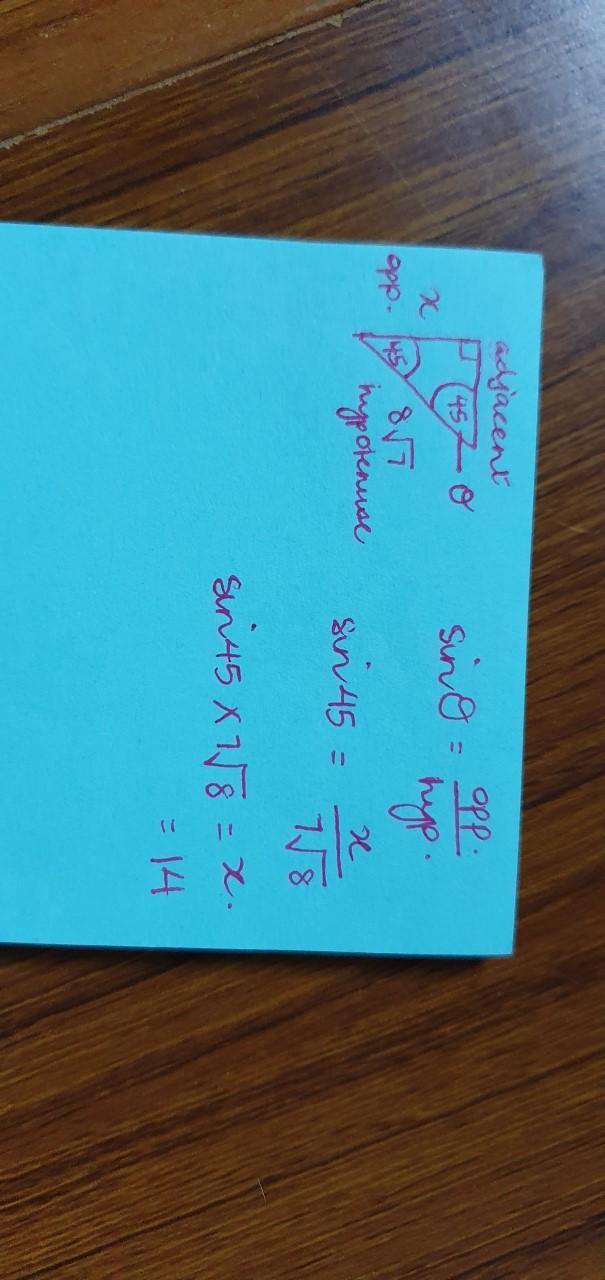 adjacent
x
45
θ
opp.
45
8√7
hypotenuse
sinθ = opp. / hyp.
sin 45 = x / 7√8
sin 45 × 7√8 = x.
= 14